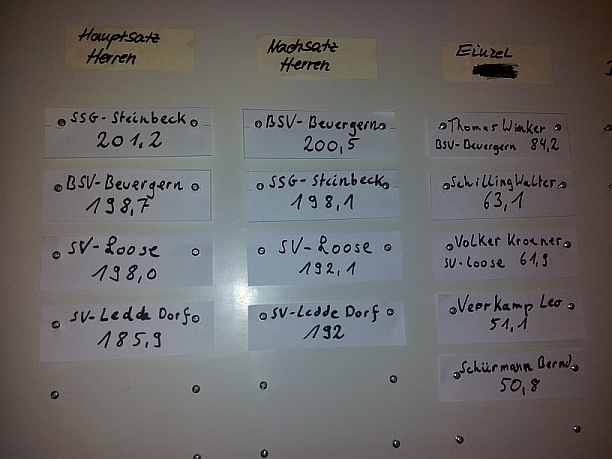 Hauptsatz
Herren
SSG-Steinbeck
201,2
BSV-Bevergern
198,7
SV-Loose
198,0
SV-Ledde Dorf
185,9
Nachsatz
Herren
BSV-Bevergern
200,5
SSG-Steinbeck
198,1
SV-Loose
192,1
SV-Ledde Dorf
192
Einzel
Thomas Winker
BSV-Bevergern 84,2
Schilling Walter
63,1
Volker Kroener
SV-Loose 61,9
Veerkamp Leo
51,1
Schürmann Bernd
50,8